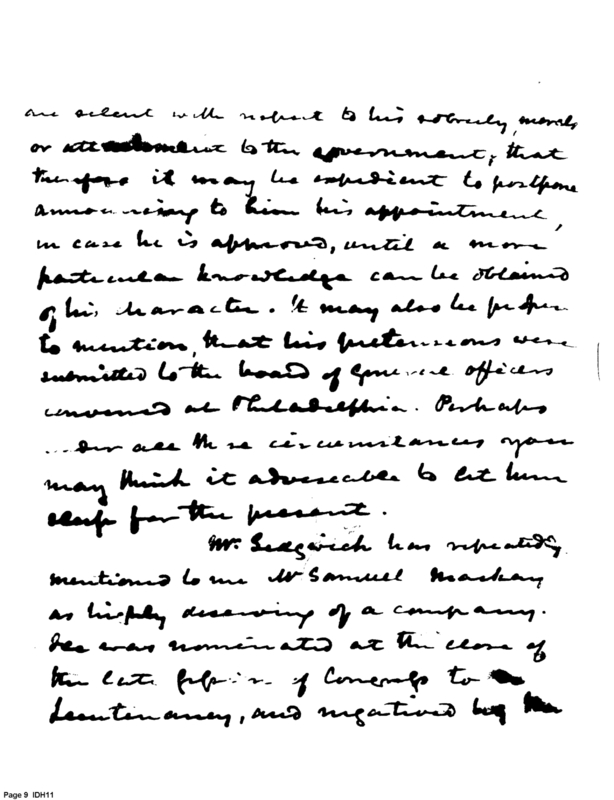 are silent with respect to his sobriety, morals
or attachment to the government; that
therefore it may be expedient to postpone
announcing to him his appointment,
in case he is approved, until a more
particular knowledge can be obtained
of his character. It may also be proper
to mention, that his pretensions were
submitted to the board of General officers
convened at Philadelphia. Perhaps
under all these circumstances you
may think it adviseable to let him
sleep for the present.
Mr. Sedgwick has repeatedly
mentioned to me Mr Samuel Mackay
as highly deserving of a company.
He was nominated at the close of
the late session of Congress to a
Lieutenancy, and negatived by the
Page 9 IDH11